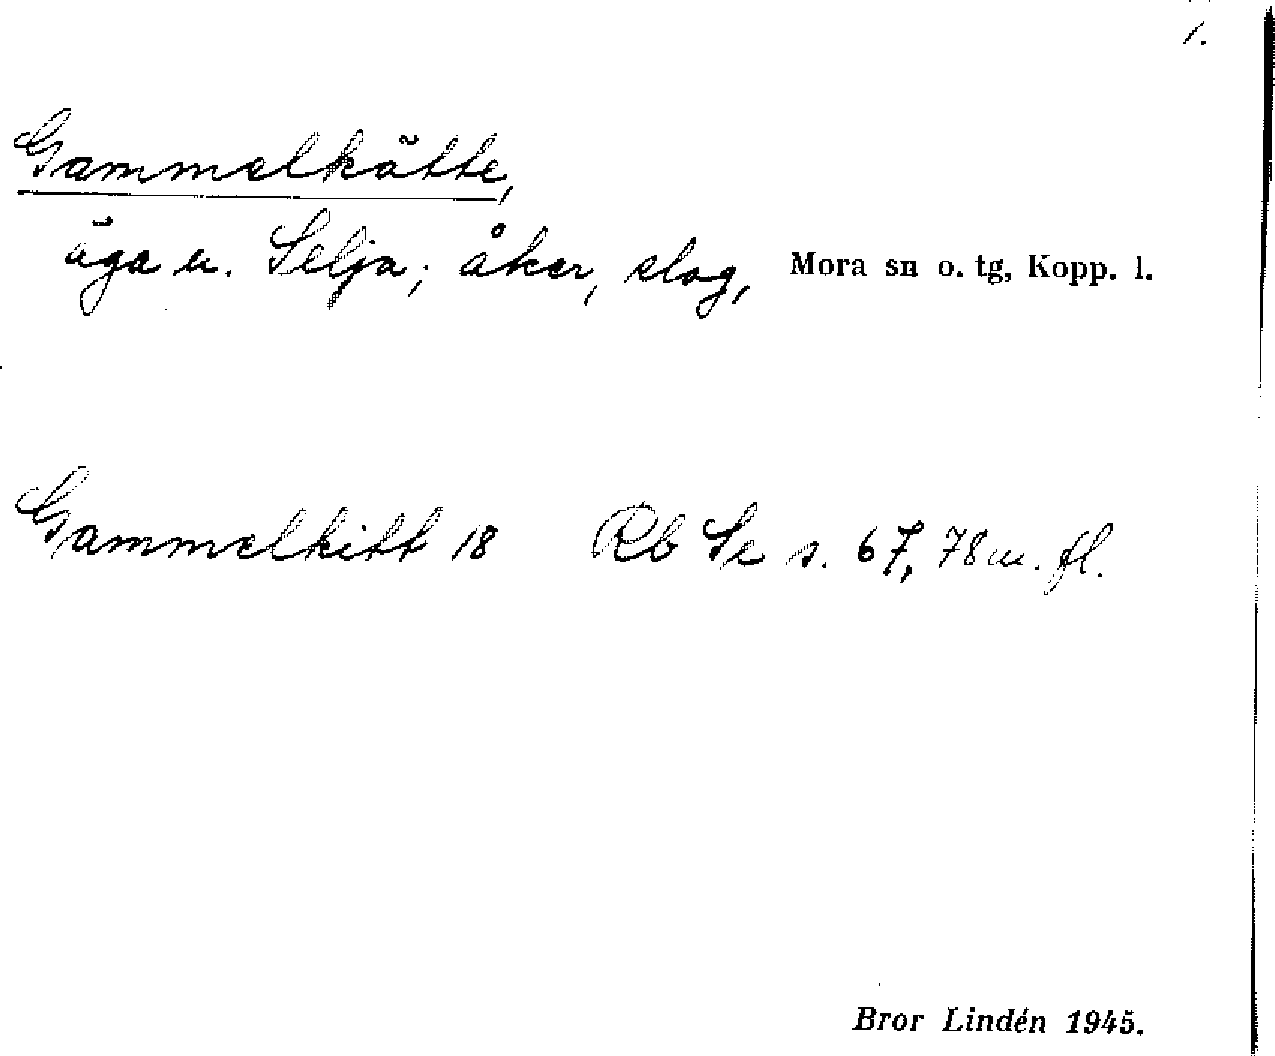 1.
Gammelkätte,
äga u. Selja; åker, slog, Mora sn o. tg, Kopp. l.
Gammelkitt 18 Rb Se s. 67, 78 m. fl.
Bror Lindén 1945.